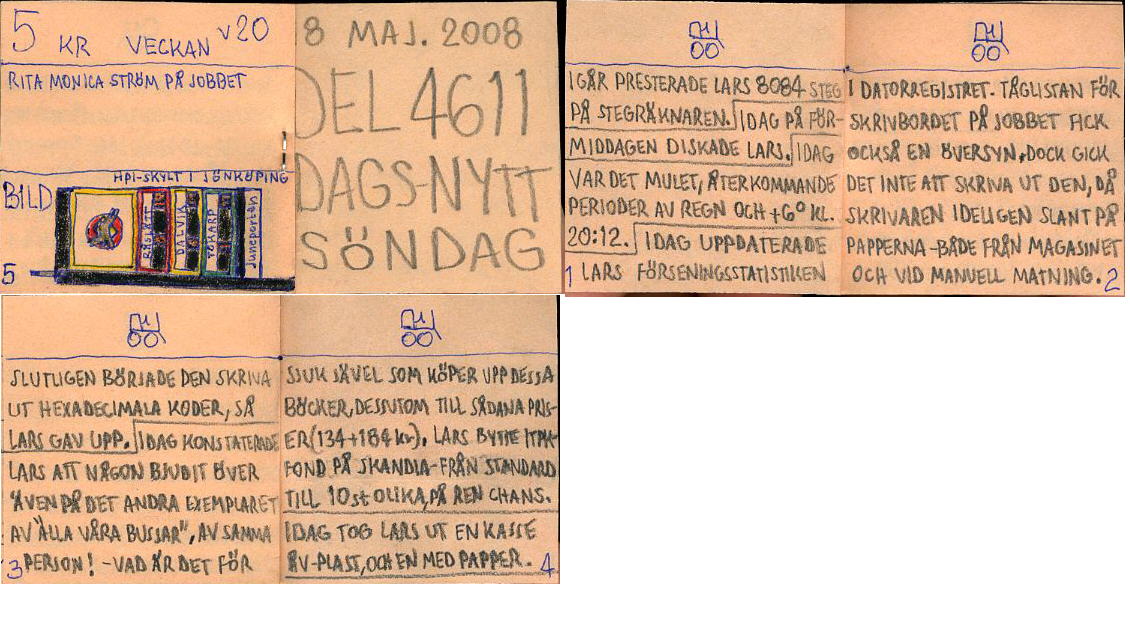 5 KR VECKAN v20
RITA MONICA STRÖM PÅ JOBBET
HPI-SKYLT I JÖNKÖPING
BILD
Juneporten
5
8 MAJ. 2008
DEL 4611
DAGS-NYTT
SÖNDAG
IGÅR PRESTERADE LARS 8084 STEG
PÅ STEGRÄKNAREN. IDAG PÅ FÖR-
MIDDAGEN DISKADE LARS. IDAG
VAR DET MULET, ÅTERKOMMANDE
PERIODER AV REGN OCH +6° KL.
20:12. IDAG UPPDATERADE
1 LARS FÖRSENINGSSTATISTIKEN
I DATORREGISTRET. TÅGLISTAN FÖR
SKRIVBORDET PÅ JOBBET FICK
OCKSÅ EN ÖVERSYN, DOCK GICK
DET INTE ATT SKRIVA UT DEN, DÅ
SKRIVAREN IDELIGEN SLANT PÅ
PAPPERNA - BÅDE FRÅN MAGASINET
OCH VID MANUELL MATNING. 2
SLUTLIGEN BÖRJADE DEN SKRIVA
UT HEXADECIMALA KODER, SÅ
LARS GAV UPP. IDAG KONSTATERADE
LARS ATT NÅGON BJUDIT ÖVER
ÄVEN PÅ DET ANDRA EXEMPLARET
AV "ALLA VÅRA BUSSAR", AV SAMMA
3 PERSON! - VAD ÄR DET FÖR
SJUK JÄVEL SOM KÖPER UPP DESSA
BÖCKER, DESSUTOM TILL SÅDANA PRIS-
ER (134+184 kr). LARS BYTTE ITPK-
FOND PÅ SKANDIA - FRÅN STANDARD
TILL 10 st OLIKA, PÅ REN CHANS.
IDAG TOG LARS UT EN KASSE
ÅV-PLAST, OCH EN MED PAPPER. 4